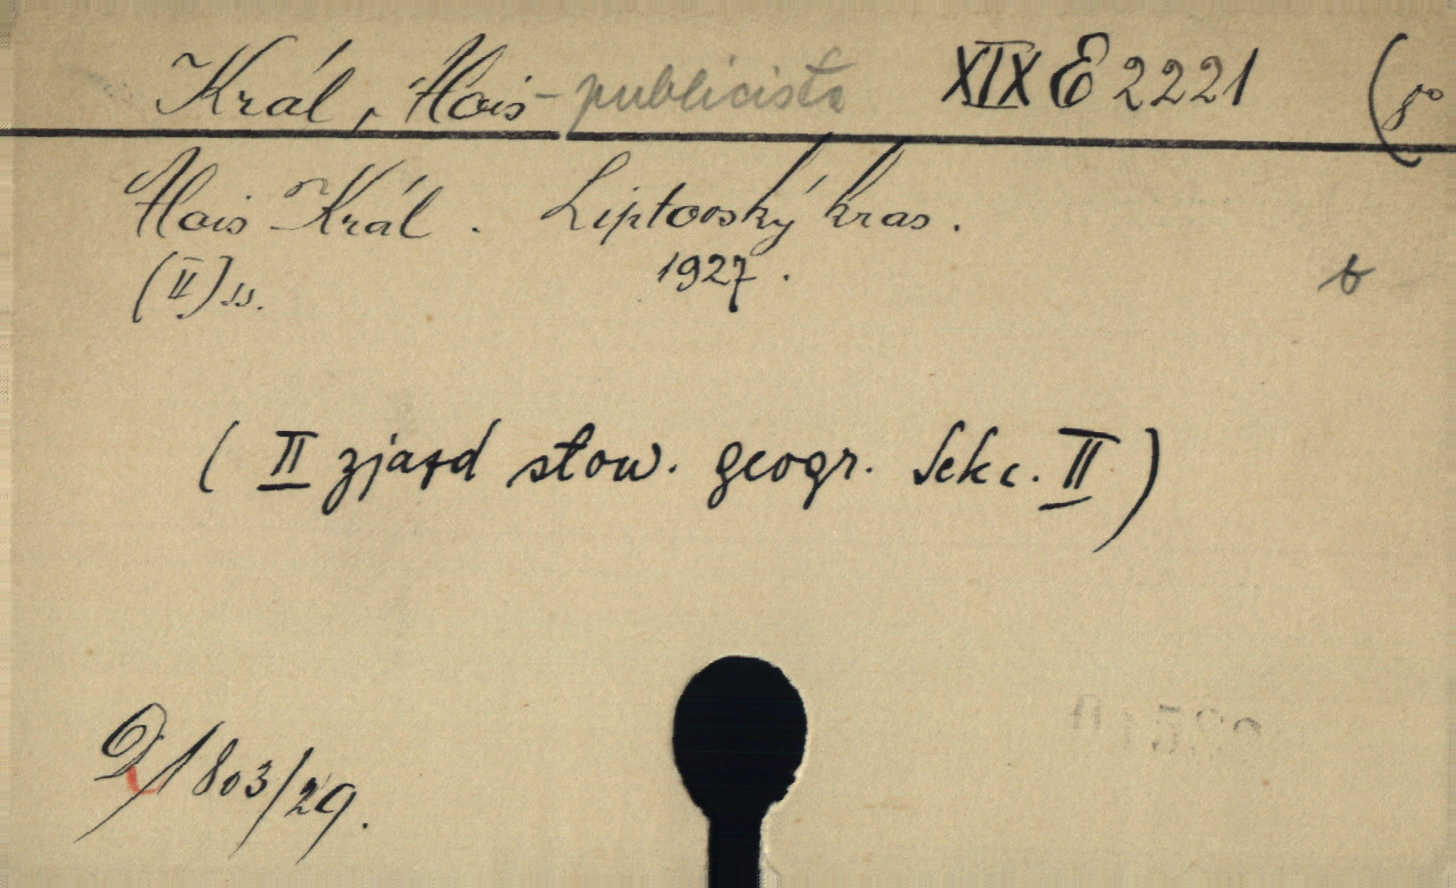 Král, Alois - publicista XIX E 2221 (8°
Alois Král. Liptovský kras.
(II) ss. 1927.
b
( II zjazd stow. geogr. Sekc. II )
D/1803/29.